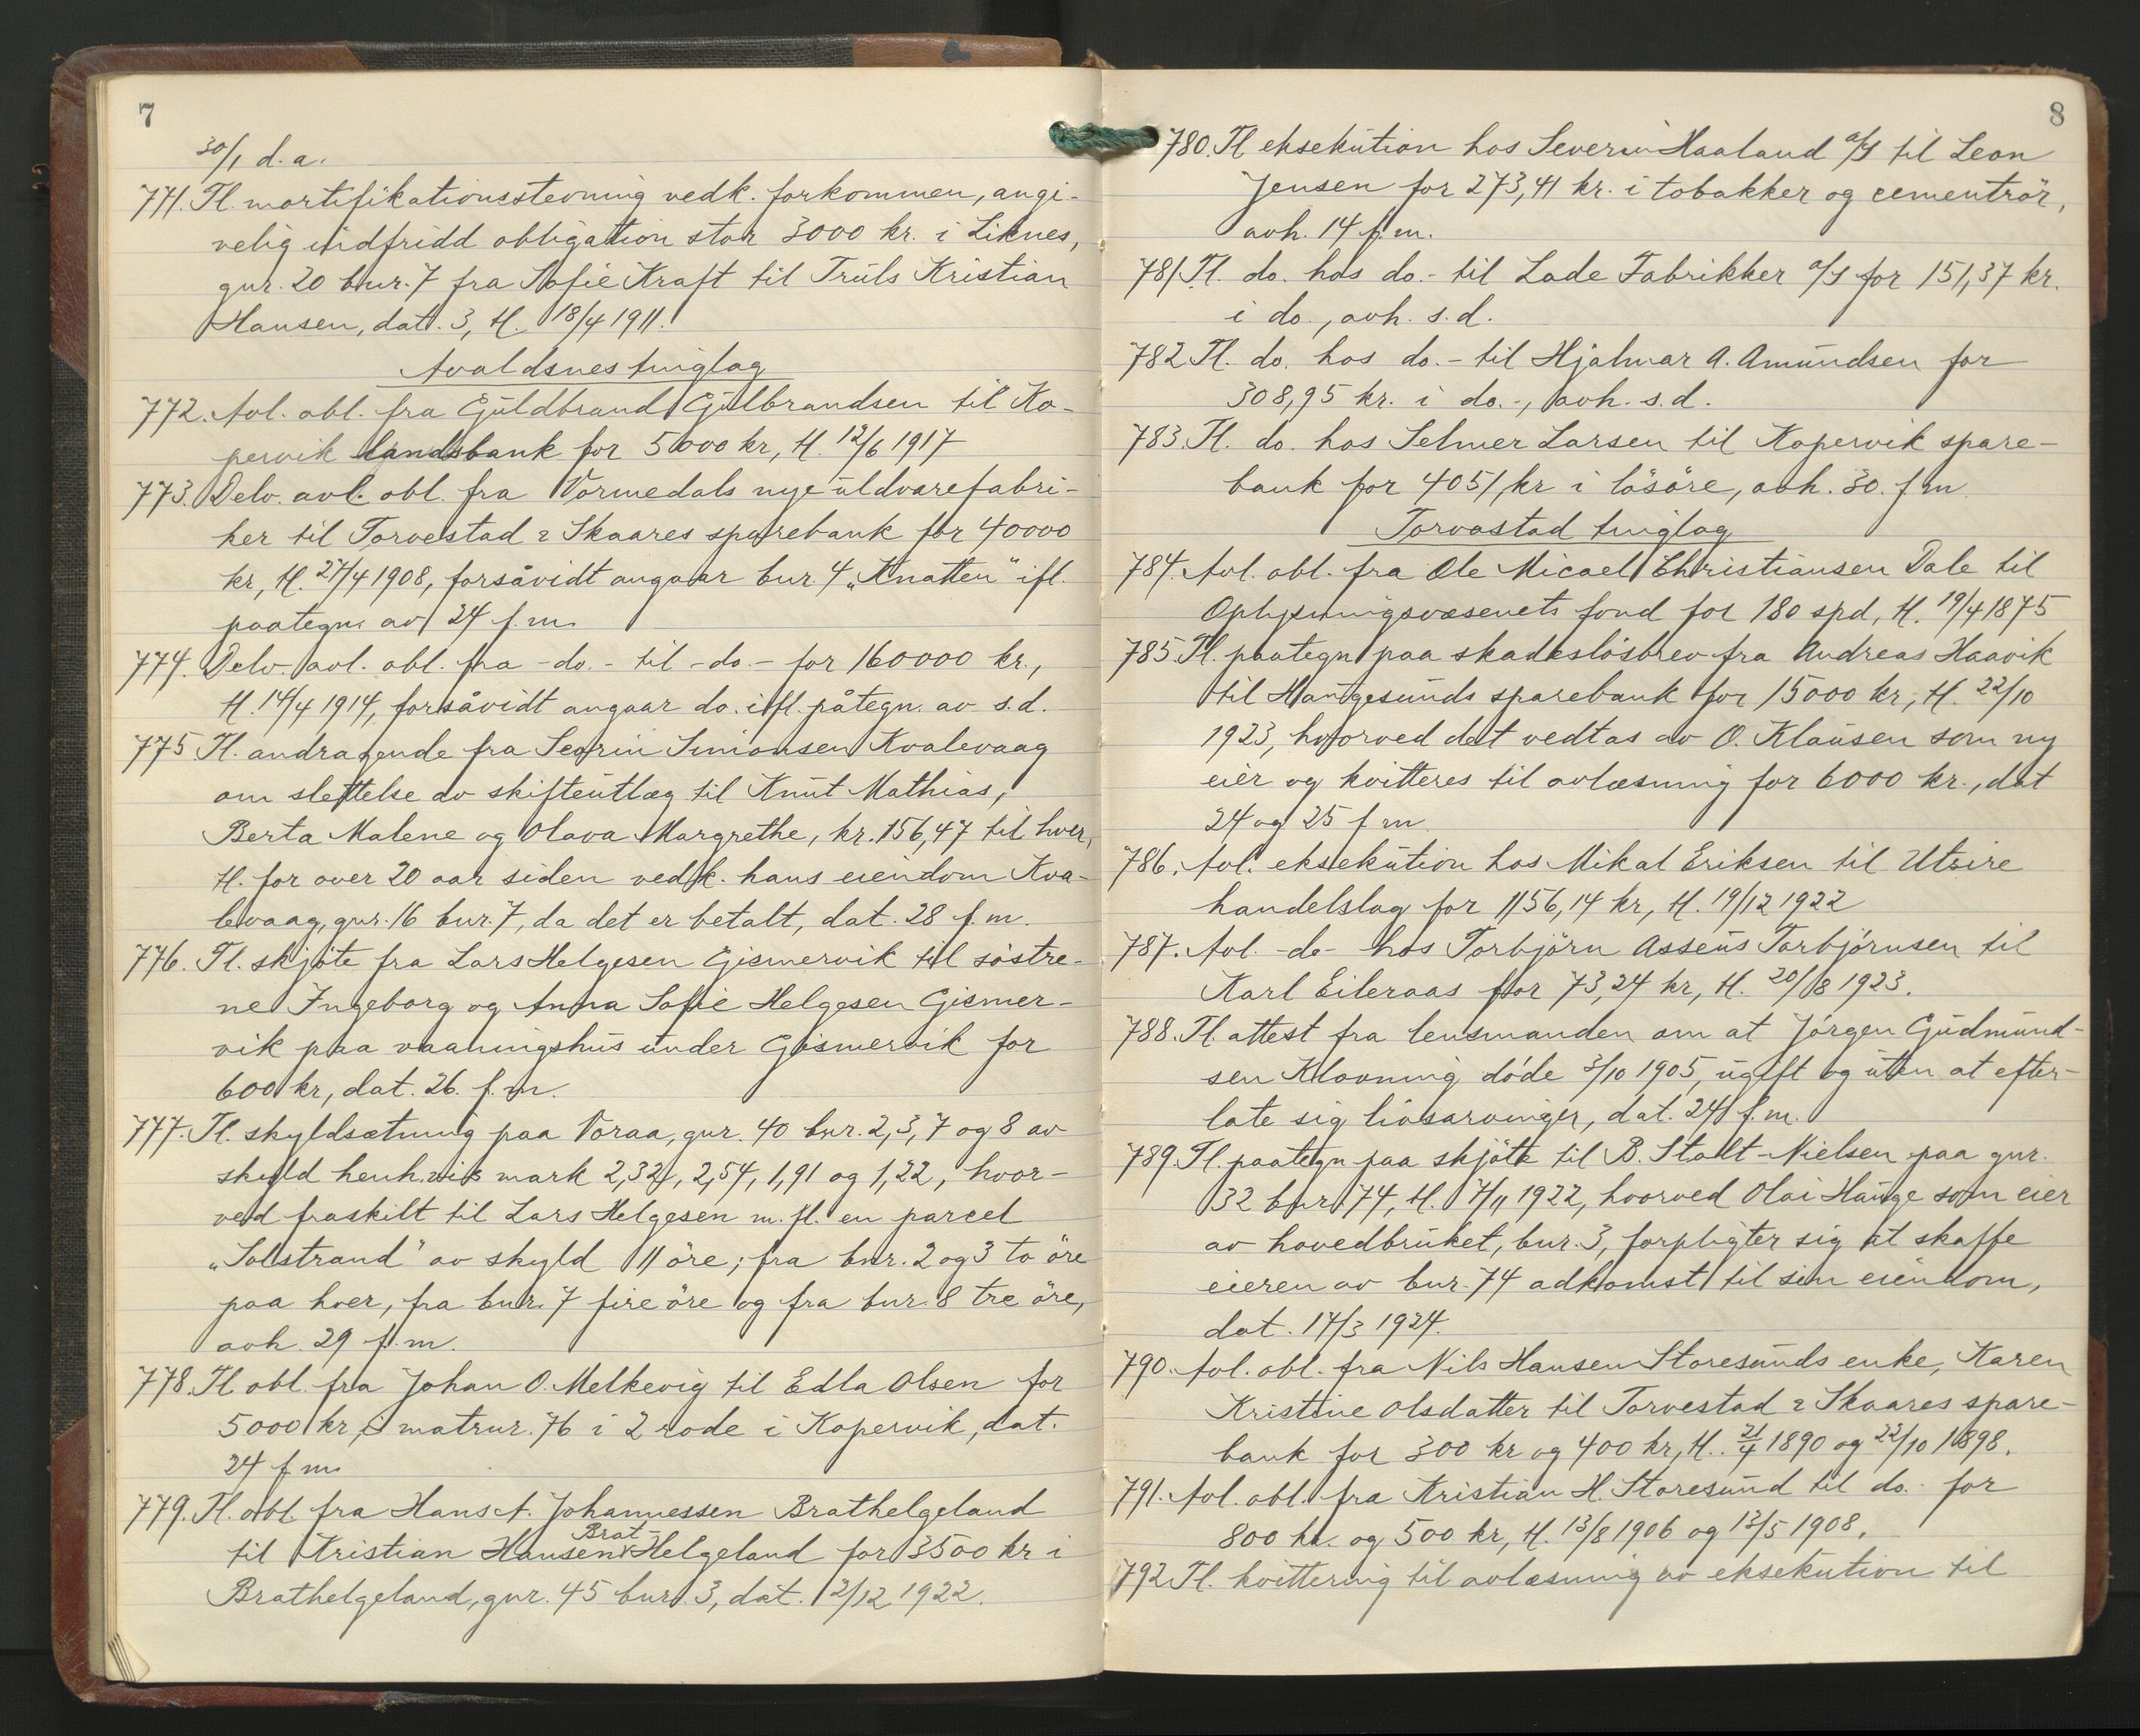 7
30/1 d. a.
771. Tl. mortifikationsstevning vedk. forkommen, angi-
velig indfridd obligation stor 3000 kr. i Liknes,
gnr. 20 bnr. 7 fra Sofie Kraft til Truls Kristian
Hansen, dat. 3, tl. 18/4 1911.
Avaldsnes tinglag
772. Avl. obl. fra Guldbrand Gulbrandsen til Ko-
pervik landsbank for 5000 kr, tl. 12/6 1917
773. Delv. avl. obl. fra Vormedals nye uldvarefabri-
ker til Torvestad & Skaares sparebank for 40000
kr, tl. 27/4 1908, forsåvidt angaar bnr. 4 „Knatten" ifl.
paategn. av 24 f. m.
774. Delv. avl. obl. fra -do.- til -do.- for 160000 kr.,
tl. 14/4 1914, forsåvidt angaar do. ifl. påtegn. av s. d.
775 Tl. andragende fra Severin Simonsen Kvalevaag
om slettelse av skifteutlæg til Knut Mathias,
Berta Malene og Olava Margrethe, kr. 156,47 til hver,
tl. for over 20 aar siden vedk. hans eiendom Kva-
levaag, gnr. 16 bnr. 7, da det er betalt, dat. 28 f. m.
776. Tl. skjöte fra Lars Helgesen Gismervik til söstre-
ne Ingeborg og Anna Sofie Helgesen Gismer-
vik paa vaaningshus under Gismervik for
600 kr, dat. 26. f. m.
777. Tl. skyldsætning paa Voraa, gnr. 40 bnr. 2, 3, 7 og 8 av
skyld henh.vis mark 2,32, 2,54, 1,91 og 1,22, hvor-
ved fraskilt til Lars Helgesen m. fl. en parcel
„Solstrand" av skyld 11 öre; fra bnr. 2 og 3 to öre
paa hver, fra bnr. 7 fire öre og fra bnr. 8 tre öre,
avh. 29 f. m.
778. Tl obl. fra Johan O. Melkevig til Edla Olsen for
5000 kr, i matrnr. 76 i 2 rode i Kopervik, dat.
24 f m.
779. Tl. obl. fra Hans A. Johannessen Brathelgeland
til Kristian Hansen Brat-Helgeland for 3500 kr i
Brathelgeland, gnr. 45 bnr. 3, dat. 12/12 1922.
8
780. Tl eksekution hos Severin Haaland a/s til Leon
Jensen for 273,41 kr. i tobakker og cementrör,
avh. 14 f. m.
781. Tl. do. hos do.- til Lade Fabrikker a/s for 151,37 kr.
i do., avh. s. d.
782 Tl. do. hos do.- til Hjalmar A. Amundsen for
308,95 kr. i do.-, avh. s. d.
783. Tl. do. hos Selmer Larsen til Kopervik spare-
bank for 4051 kr i lösöre, avh. 30. f m.
Torvastad tinglag
784. Avl. obl. fra Ole Micael Christiansen Dale til
Oplysningsvæsenets fond for 180 spd, tl. 19/4 1875
785 Tl. paategn paa skadeslösbrev fra Andreas Haavik
til Haugesunds sparebank for 15000 kr, tl. 22/10
1923, hvorved det vedtas av O. Klausen som ny
eier og kvitteres til avlæsning for 6000 kr., dat
24 og 25 f m.
786. Avl. eksekution hos Mikal Eriksen til Utsire
handelslag for 1156,14 kr, tl. 19/12 1922
787. Avl. -do- hos Torbjörn Assens Torbjörnsen til
Karl Eileraas for 73,24 kr, tl. 20/8 1923.
788. Tl. attest fra lensmanden om at Jörgen Gudmund-
sen Klovning döde 3/10 1905, ugift og uten at efter-
late sig livsarvinger, dat. 24 f. m.
789. Tl. paategn paa skjöte til B. Stolt-Nielsen paa gnr.
32 bnr 74, tl. 7/11 1922, hvorved Olai Hauge som eier
av hovedbruket, bnr. 3, forpligter sig at skaffe
eieren av bnr. 74 adkomst til sin eiendom,
dat. 17/3 1924.
790. Avl. obl. fra Nils Hansen Storesunds enke, Karen
Kristine Olsdatter til Torvestad & Skaares spare-
bank for 300 kr og 400 kr, tl. 21/4 1890 og 22/10 1898.
791. Avl. obl. fra Kristian H. Storesund til do.- for
800 kr. og 500 kr, tl. 13/8 1906 og 13/5 1908.
792 Tl. kvittering til avlæsning av eksekution til